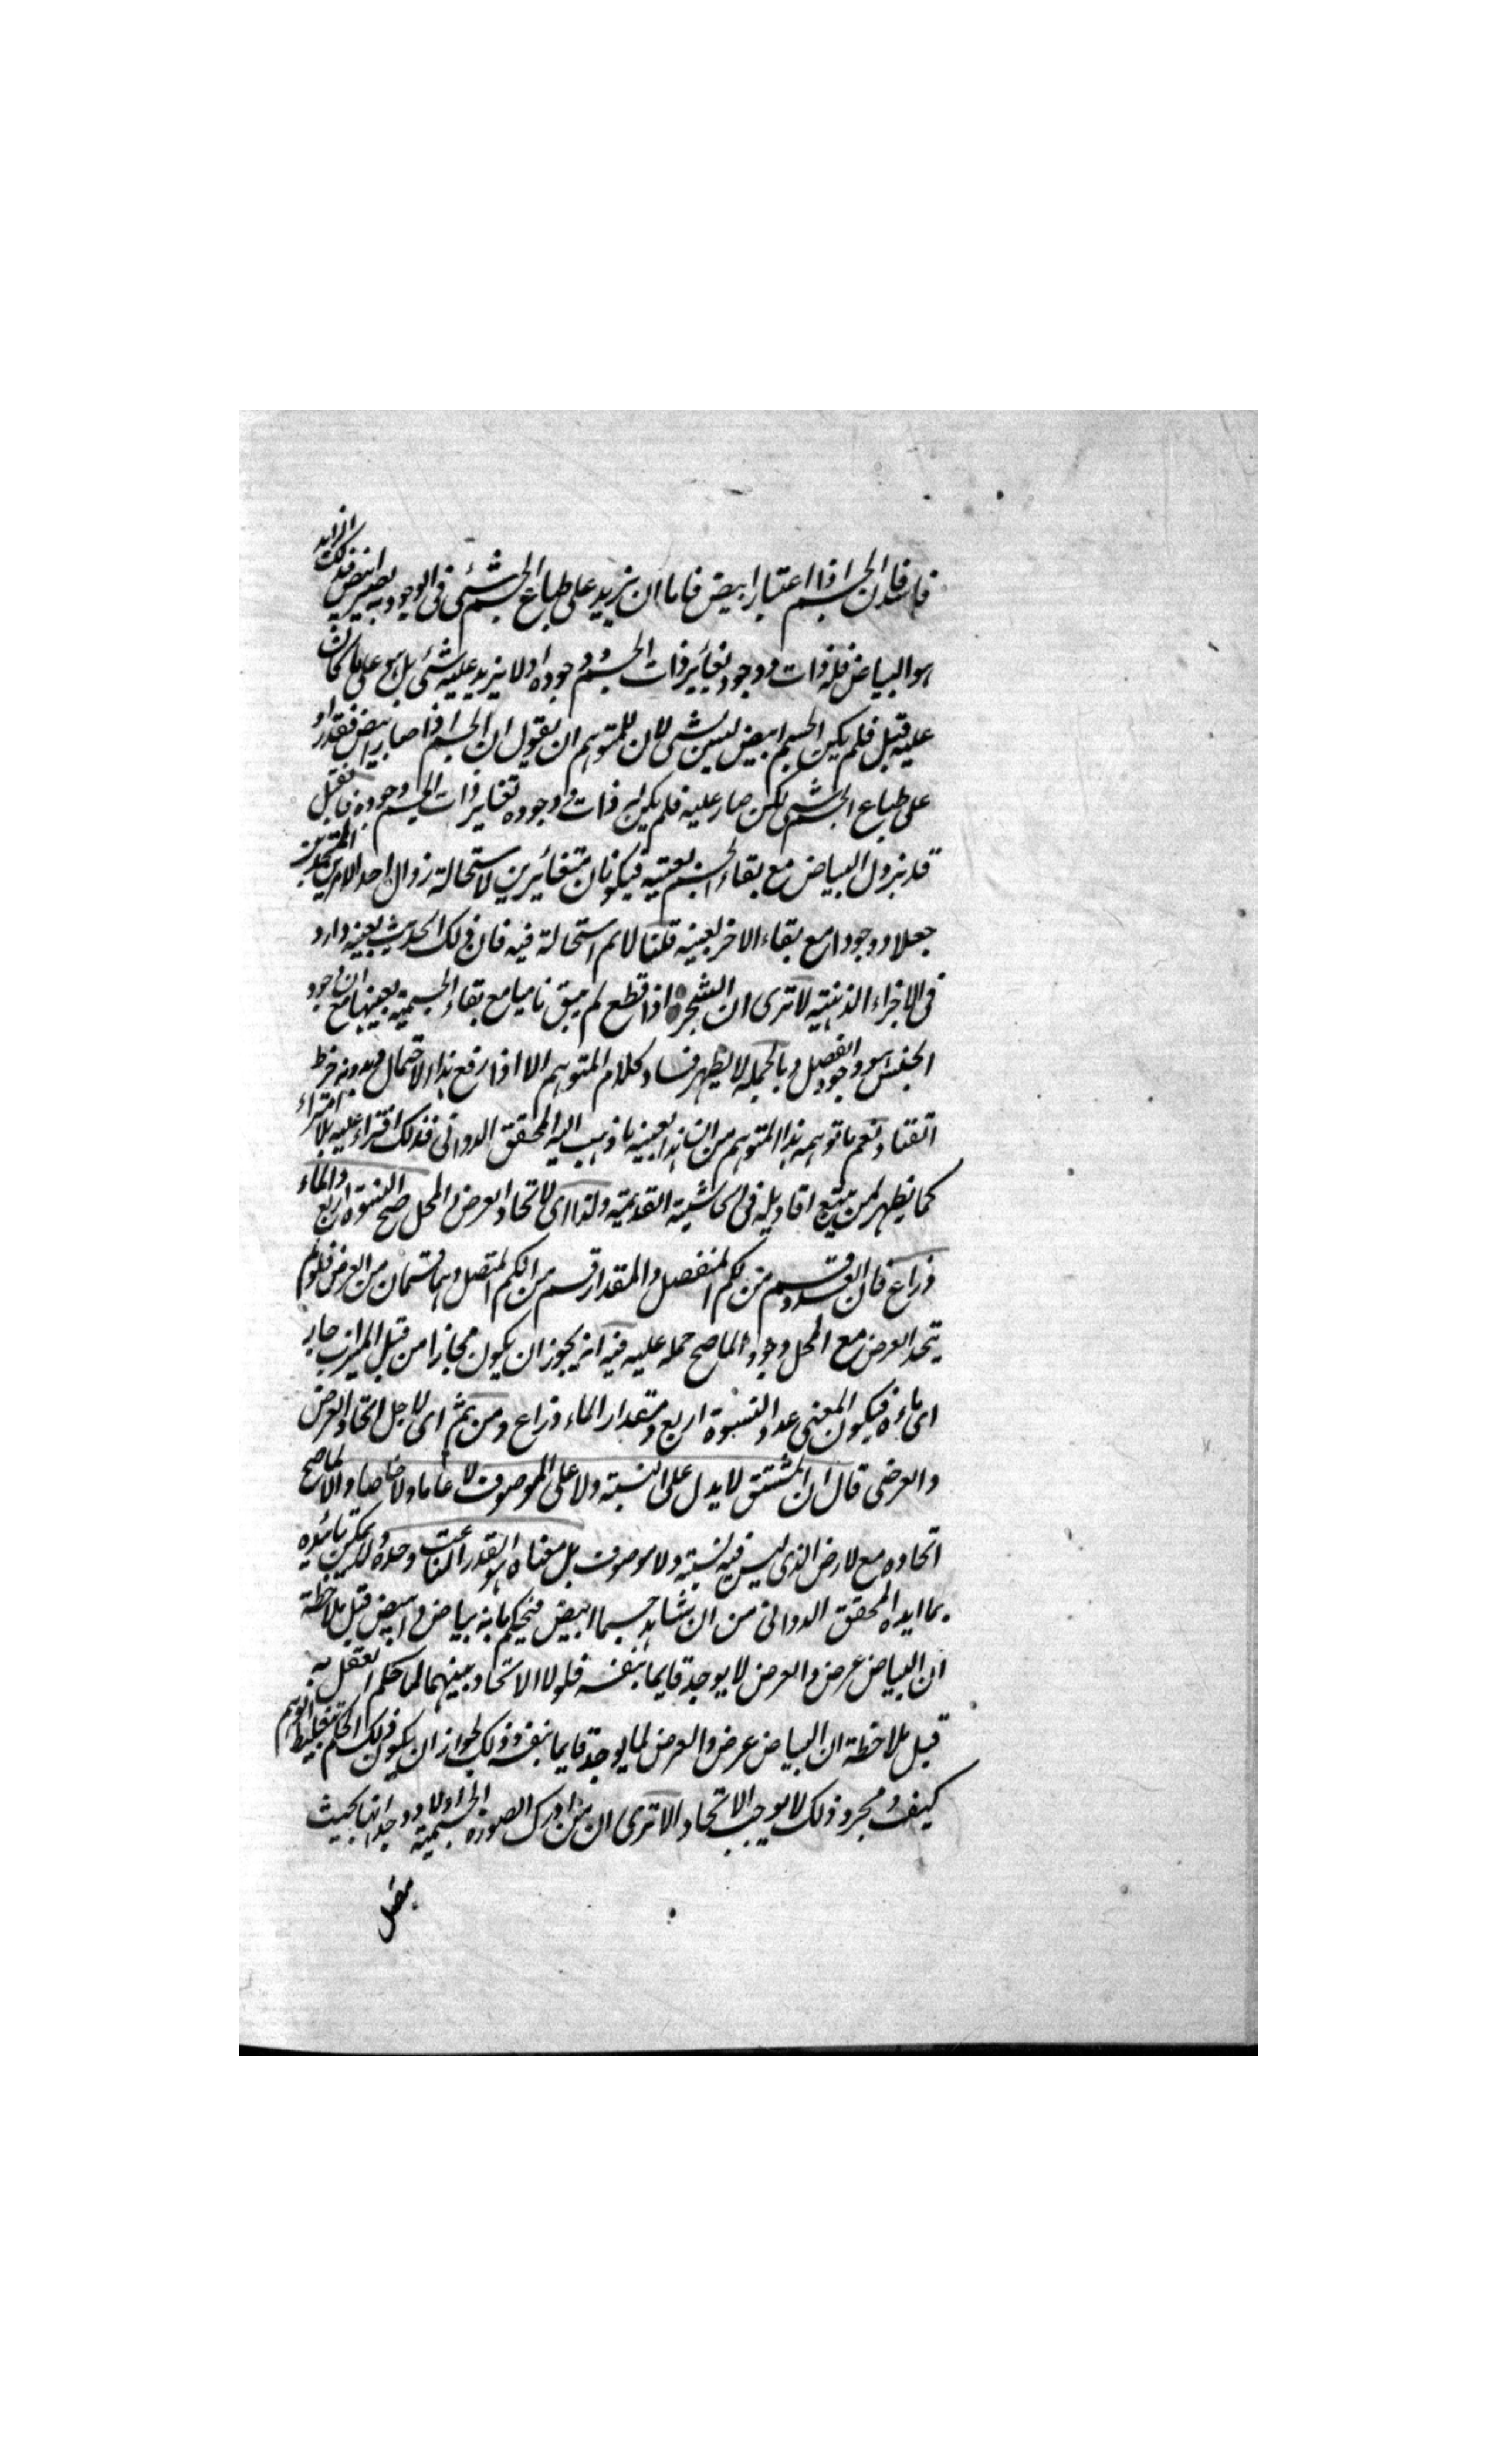 فاسد فان الجسم اذا اعتبار ابيض فاما ان يزيد على طباع الجسم شئ فى الوجود به يصير ابيض فذلك الزايد
هو البياض فله ذات و وجود يغاير ذات الجسم و وجوده اولا يزيد عليه شئ بل هو على ما كان
عليه قبل فلم يكن الجسم ابيض ليس بشئ لان للمتوهم ان يقول ان الجسم اذا صار ابيض فقد زاد
على طباع الجسم شئ لكن صار عليه فلم يكن له ذات و وجوده تغاير ذات الجسم و وجوده فان قيل
قد يزول البياض مع بقاء الجسم بعينه فيكونان متغائرين لاستحالة زوال احد الامرين المتحدين
جعلا و وجودا مع بقاء الاخر بعينه قلنا لا نم استحالة فيه فان ذلك الحديث بعينه وارد
فى الاجزاء الذهنية لا ترى ان الشجرة اذا قطع لم يبق ناميا مع بقاء الجسمية بعينها مع ان وجود
الجنس هو وجود الفصل وبالجملة لا يظهر فساد كلام المتوهم الا اذا رفع هذا الاحتمال ودونه خرط
القتاد نعم ما توهمه هذا المتوهم من ان هذا بعينه ما ذهب اليه المحقق الدوانى فذلك افتراء عليه بلا امتراء
كما يظهر لمن يتتبع اقاويله فى الحاشية القديمة ولذا اى لاتحاد العرض والمحل صح النسوة اربع والماء
ذراع فان العدد قسم من الكم المنفصل والمقدار قسم من الكم المتصل وهما قسمان من العرض فلو لم
يتحد العرض مع المحل وجودا لما صح حمله عليه فيه انه يجوز ان يكون مجازا من قبيل الميزاب جار
اى ماءه فيكون المعنى عدد النسوة اربع ومقدار الماء ذراع ومن ثم اى لاجل اتحاد العرض
والعرضى قال ان المشتق لا يدل على النسبة ولا على الموصوف لا عاما ولا خاصا والا لما صح
اتحاده مع لارض الذى ليس فيه نسبة ولا موصوف بل معناه هو القدر الناعت وحده ولا يمكن تائيده
بما ايده المحقق الدوانى من ان نشاهد جسما ابيض فيحكم بانه بياض و ابيض قبل ملاحظة
ان البياض عرض والعرض لا يوجد قايما بنفسه فلولا الاتحاد بينهما لما حكم العقل به
قبل ملاحظة ان البياض عرض والعرض لما يوجد قايما بنفسه وذلك لجواز ان يكون ذلك الحكم بتغليط الوهم
كيف ومجرد ذلك لا يوجب الاتحاد الا ترى ان من ادرك الصورة الجسمية اولا و وجد انها بحيث